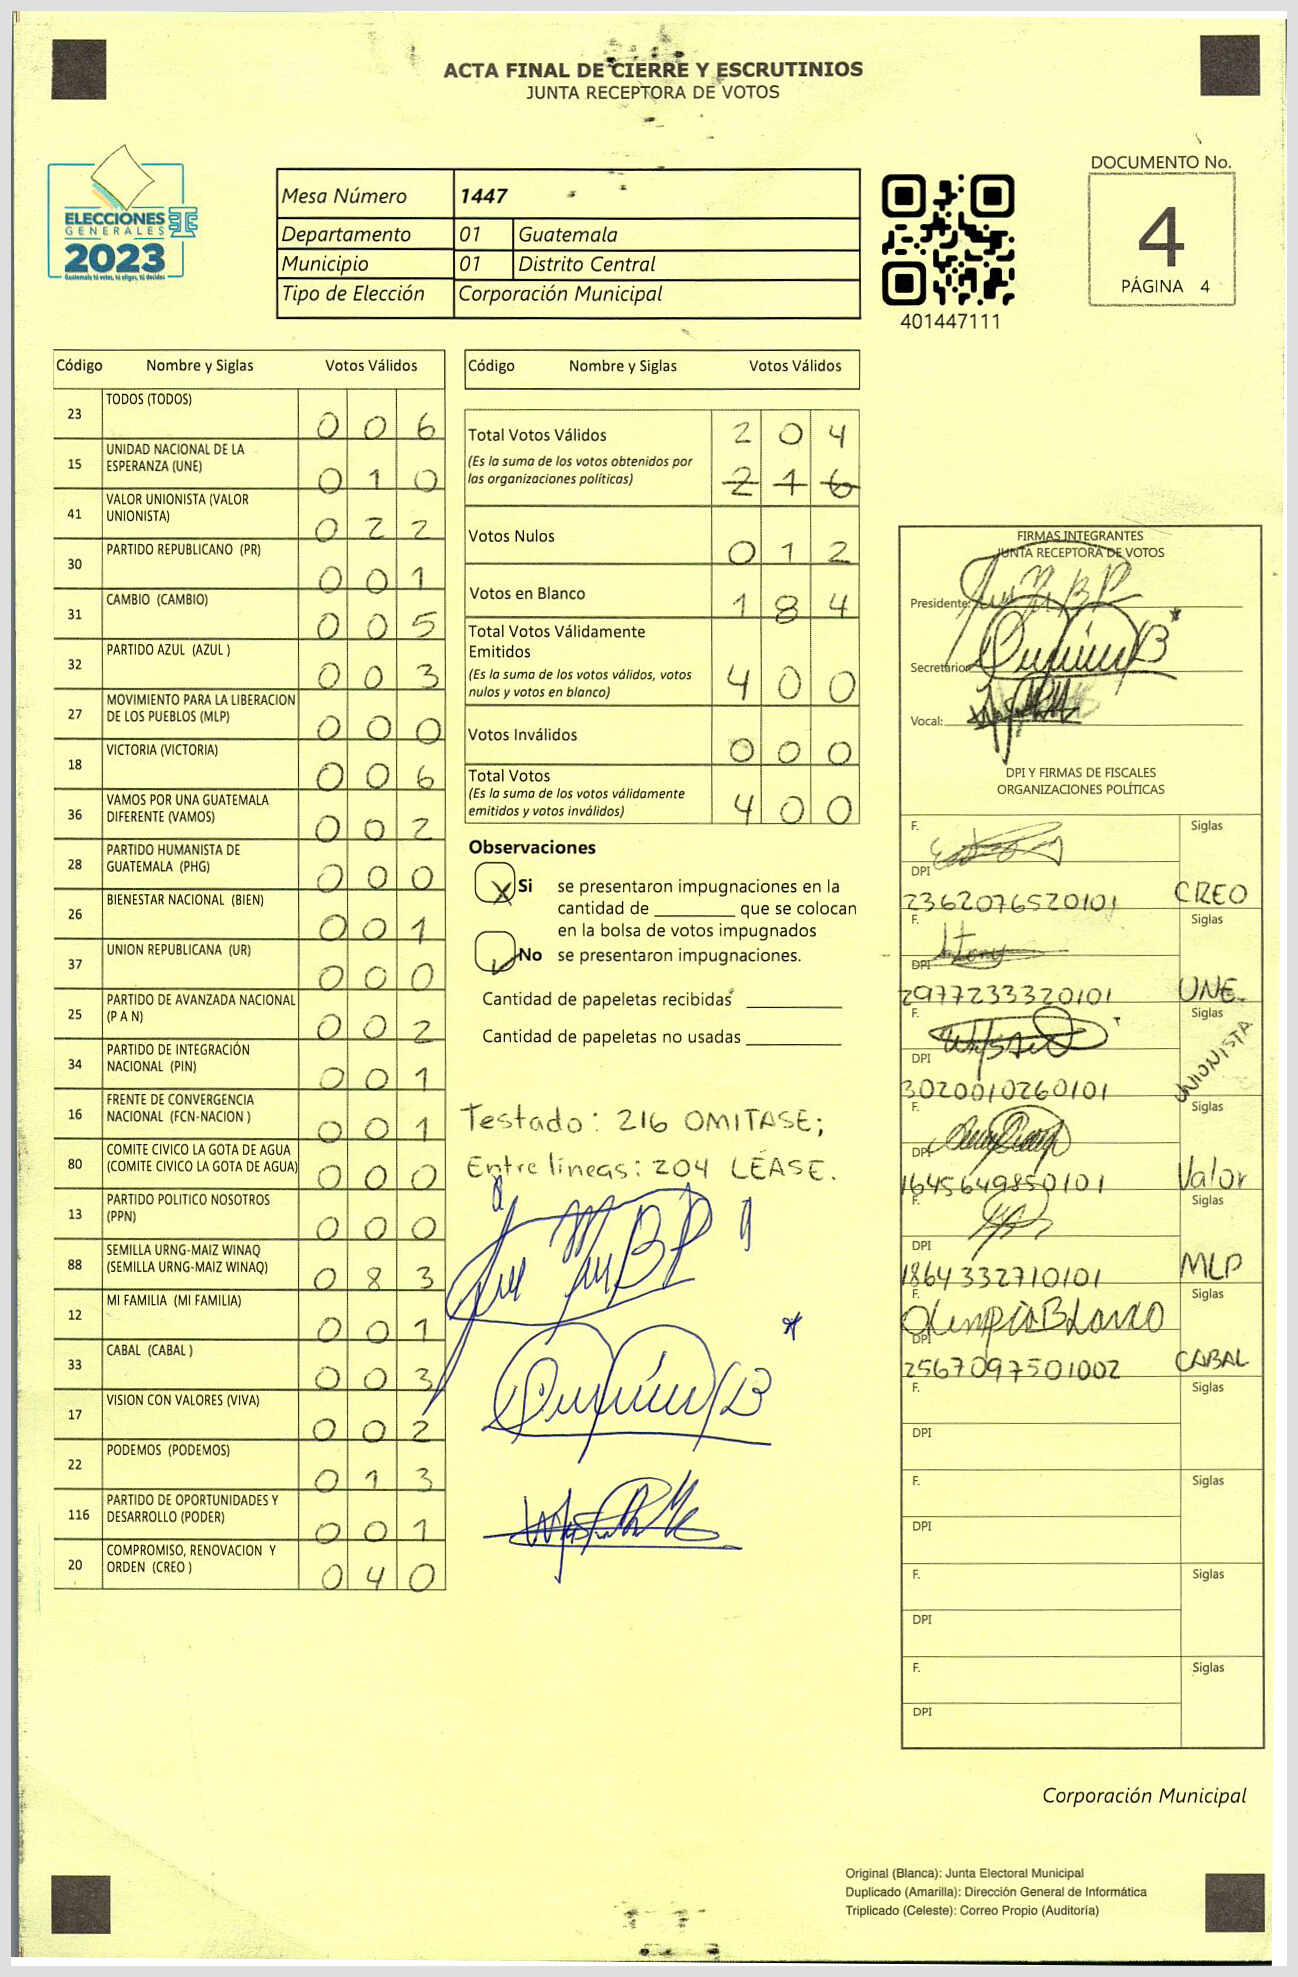 ACTA FINAL DE CIERRE Y ESCRUTINIOS
JUNTA RECEPTORA DE VOTOS
ELECCIONES
GENERALES
2023
Guatemala tú votes, tú eliges, tú decides
Mesa Número 1447
Departamento 01 Guatemala
Municipio 01 Distrito Central
Tipo de Elección Corporación Municipal
401447111
DOCUMENTO No.
4
PÁGINA 4
Código Nombre y Siglas Votos Válidos
23 TODOS (TODOS) 0 0 6
15 UNIDAD NACIONAL DE LA ESPERANZA (UNE) 0 1 0
41 VALOR UNIONISTA (VALOR UNIONISTA) 0 2 2
30 PARTIDO REPUBLICANO (PR) 0 0 1
31 CAMBIO (CAMBIO) 0 0 5
32 PARTIDO AZUL (AZUL ) 0 0 3
27 MOVIMIENTO PARA LA LIBERACION DE LOS PUEBLOS (MLP) 0 0 0
18 VICTORIA (VICTORIA) 0 0 6
36 VAMOS POR UNA GUATEMALA DIFERENTE (VAMOS) 0 0 2
28 PARTIDO HUMANISTA DE GUATEMALA (PHG) 0 0 0
26 BIENESTAR NACIONAL (BIEN) 0 0 1
37 UNION REPUBLICANA (UR) 0 0 0
25 PARTIDO DE AVANZADA NACIONAL (P A N) 0 0 2
34 PARTIDO DE INTEGRACIÓN NACIONAL (PIN) 0 0 1
16 FRENTE DE CONVERGENCIA NACIONAL (FCN-NACION ) 0 0 1
80 COMITE CIVICO LA GOTA DE AGUA (COMITE CIVICO LA GOTA DE AGUA) 0 0 0
13 PARTIDO POLITICO NOSOTROS (PPN) 0 0 0
88 SEMILLA URNG-MAIZ WINAQ (SEMILLA URNG-MAIZ WINAQ) 0 8 3
12 MI FAMILIA (MI FAMILIA) 0 0 1
33 CABAL (CABAL ) 0 0 3
17 VISION CON VALORES (VIVA) 0 0 2
22 PODEMOS (PODEMOS) 0 1 3
116 PARTIDO DE OPORTUNIDADES Y DESARROLLO (PODER) 0 0 1
20 COMPROMISO, RENOVACION Y ORDEN (CREO ) 0 4 0
Código Nombre y Siglas Votos Válidos
Total Votos Válidos 2 0 4
(Es la suma de los votos obtenidos por
las organizaciones políticas) 2 1 6
Votos Nulos 0 1 2
Votos en Blanco 1 8 4
Total Votos Válidamente
Emitidos
(Es la suma de los votos válidos, votos
nulos y votos en blanco) 4 0 0
Votos Inválidos 0 0 0
Total Votos
(Es la suma de los votos válidamente
emitidos y votos inválidos) 4 0 0
Observaciones
X Si se presentaron impugnaciones en la
cantidad de ________ que se colocan
en la bolsa de votos impugnados
No se presentaron impugnaciones.
Cantidad de papeletas recibidas __________
Cantidad de papeletas no usadas __________
Testado: 216 OMITASE;
Entre lineas: 204 LÉASE.
FIRMAS INTEGRANTES
JUNTA RECEPTORA DE VOTOS
Presidente:
Secretario:
Vocal:
DPI Y FIRMAS DE FISCALES
ORGANIZACIONES POLÍTICAS
F. Siglas
DPI
2362076520101 CREO
F. Siglas
DPI
2977233320101 UNE.
F. Siglas
DPI
3020010260101 UNIONISTA
F. Siglas
DPI
1645649850101 Valor
F. Siglas
DPI
1864332710101 MLP
F. Siglas
Olimpia Blanco
DPI
2567097501002 CABAL
F. Siglas
DPI
F. Siglas
DPI
F. Siglas
DPI
F. Siglas
DPI
Corporación Municipal
Original (Blanca): Junta Electoral Municipal
Duplicado (Amarilla): Dirección General de Informática
Triplicado (Celeste): Correo Propio (Auditoría)